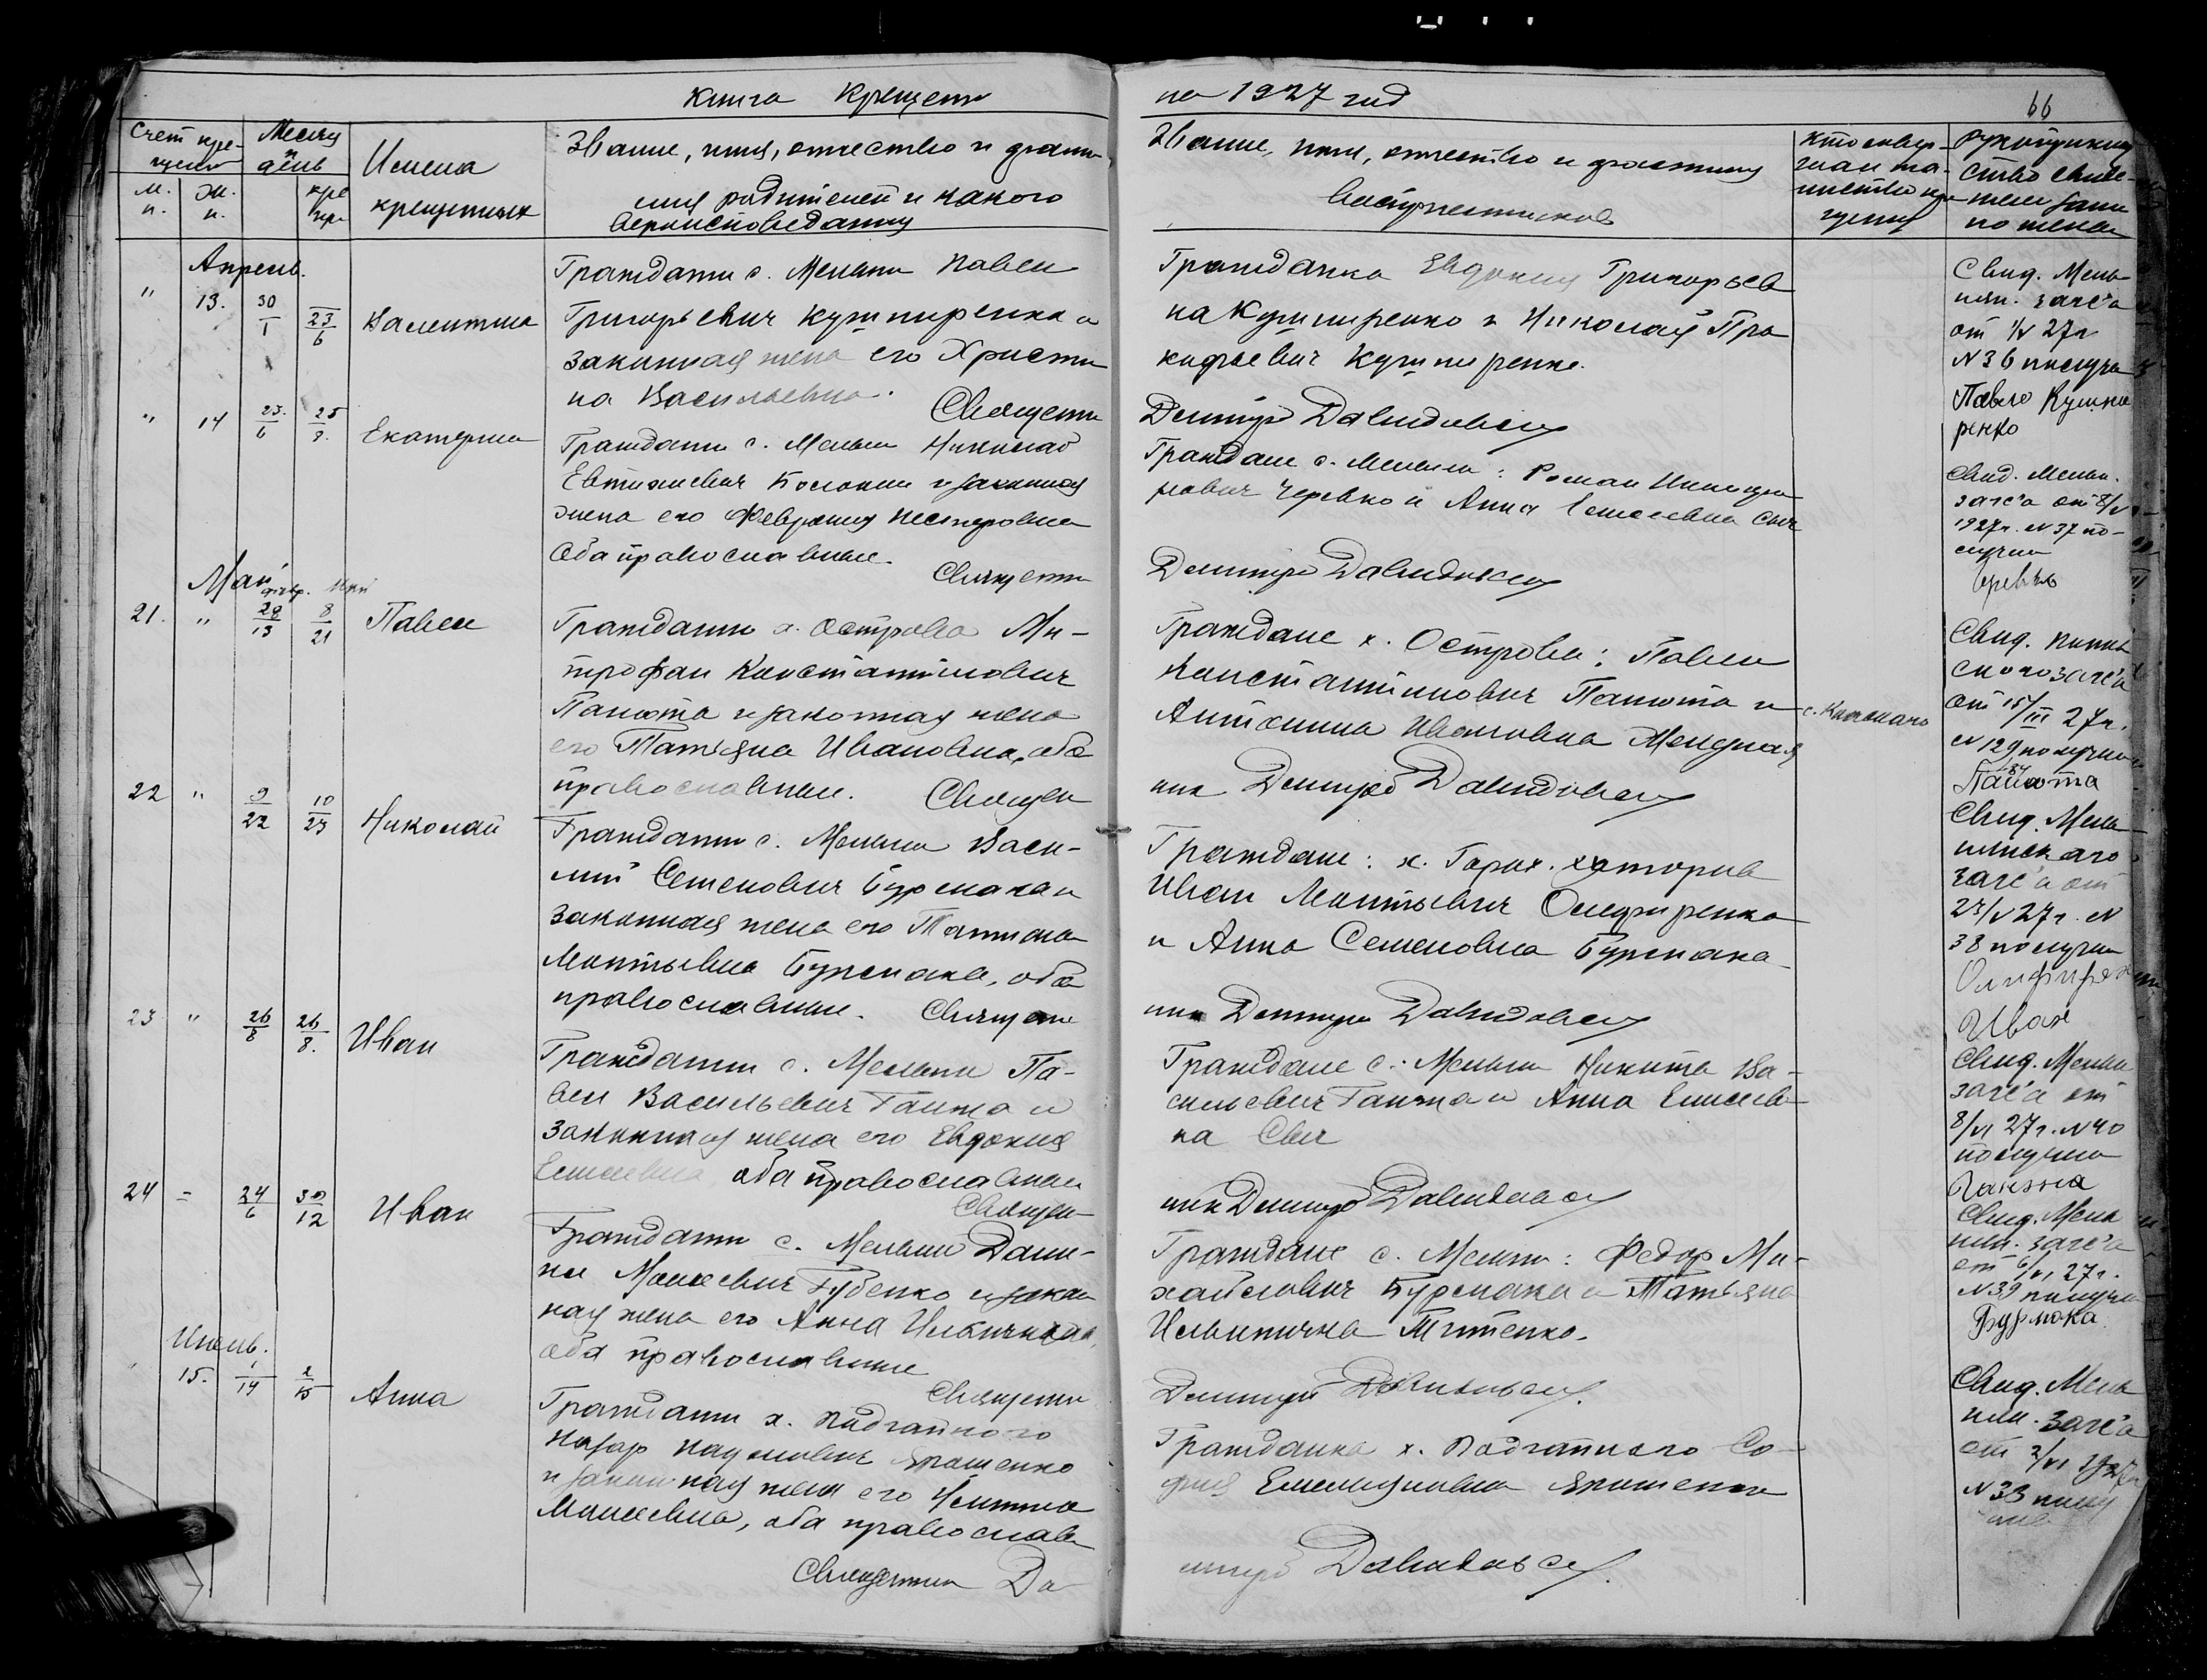 Книга Крещени на 1927 год
66
Счет кре-
щених
Месяц
и
день
м.
п.
ж.
п.
кре
щен
Имена
крещенных
Звание, имя, отчество и фами-
лия родителей и какого
вероисповедания
Звание, имя, отчество и фамилия
Восприемников
Кто совер-
шал та-
инство кре-
щения
Апрель.
" 13. 30/1 23/6 Валентина
Гражданин с. Мельни Павел
Григорьевич Кушниренко и
законная жена его Христи
на Васильевна. Священн
Гражданка Евдокия Григорьев
на Кушниренко и Николай Про
кофьевич Кушниренко.
Димитрий Давидовский
Свид. Мель
нян. загс'а
от 1/V 27 г.
N 36 получил
Павло Кушни
ренко
" 14 23/6 25/8. Екатерина
Гражданин с. Мельни Николай
Евтихиевич и законная
жена его Феврония Нестеровна
Оба православные. Священн
Граждане с. Мельни: Роман
Черевко и Анна Елисеевна Сыч
Димитрий Давидовский
Свид. Мельн.
загс'а от 8/V
1927 г. N 37 по-
лучил
Черевко
Май
21. " 29/13 8/21 Павел
Гражданин х. Острова Ми-
трофан Константинович
Панюта и законная жена
его Татьяна Ивановна, оба
православные. Священ
Граждане х. Острова: Павел
Константинович Панюта и
Антонина Ивановна
ник Димитрий Давидовский
Свид.
ского загс'а
от 15/III 27 г.
N 129 получил
Панюта
22 " 9/22 10/23 Николай
Гражданин с. Мельни Васи-
лий Семенович Бурмака и
законная жена его Татиана
Матвьевна Бурмака, оба
православные. Священн
Граждане: х.
Иван Матвьевич Олефиренко
и Анна Семеновна Бурмака
ник Димитрий Давидовский
Свид. Мель
нянского
загс'а от
23/V 27 г. N
38 получил
Олифирен
Иван
23 " 26/8 26/8. Иван
Гражданин с. Мельни Па-
вел Васильевич Ганжа и
законная жена его Евдокия
Елисеевна оба православные
Священ
Граждане с. Мельни Никита Ва-
сильевич Ганжа и Анна Елисеев
на Сыч
ник Димитрий Давидовский
Свид. Мельн
загс'а от
8/VI 27 г. N 40
получил
Ганжа
24 = 24/6 30/12 Иван
Гражданин с. Мельни Дани-
ил Моисеевич Губенко и закон
ная жена его Анна Ильинична
оба православные
Священн
Граждане с. Мельни: Федор Ми-
хайлович Бурмака и Татьяна
Ильинична Титенко.
Димитрий Давидовский.
Свид. Мель
нян. загс'а
от 6/VI 27 г.
N 39 получил
Бурмака.
Июнь.
" 15. 1/14 2/15 Анна
Гражданин х. Подгайного
Назар Наумович Ярошенко
и законная жена его
Моисеевна, оба православ
Священник
Гражданка х. Подгайного Со-
фия Ярошенко
Давидовский.
Свид. Мель
нян. загс'а
от 2/VI 1927 г.
N 33